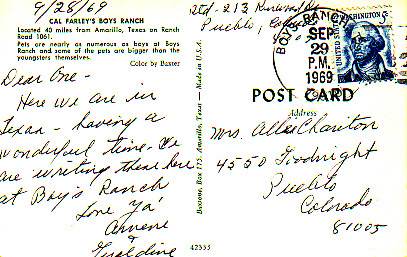 9/28/69
CAL FARLEY'S BOYS RANCH
Located 40 miles from Amarillo, Texas on Ranch
Road 1061.
Pets are nearly as numerous as boys at Boys
Ranch and some of the pets are bigger than the
youngsters themselves.
Color by Baxter
Dear One -
Here we are in
Texas - having a
wonderful time. We
are writing these here
at Boy's Ranch
Love Ya'
&
Geraldine
Baxtone, Box 175, Amarillo, Texas — Made in U.S.A.
42555
Pueblo,
BOYS RANCH
SEP
29
P.M.
1969
WASHINGTON
UNITED STATES
5¢
POST CARD
Address
Mrs. Allie Chariton
4550 Goodnight
Pueblo
Colorado
81005